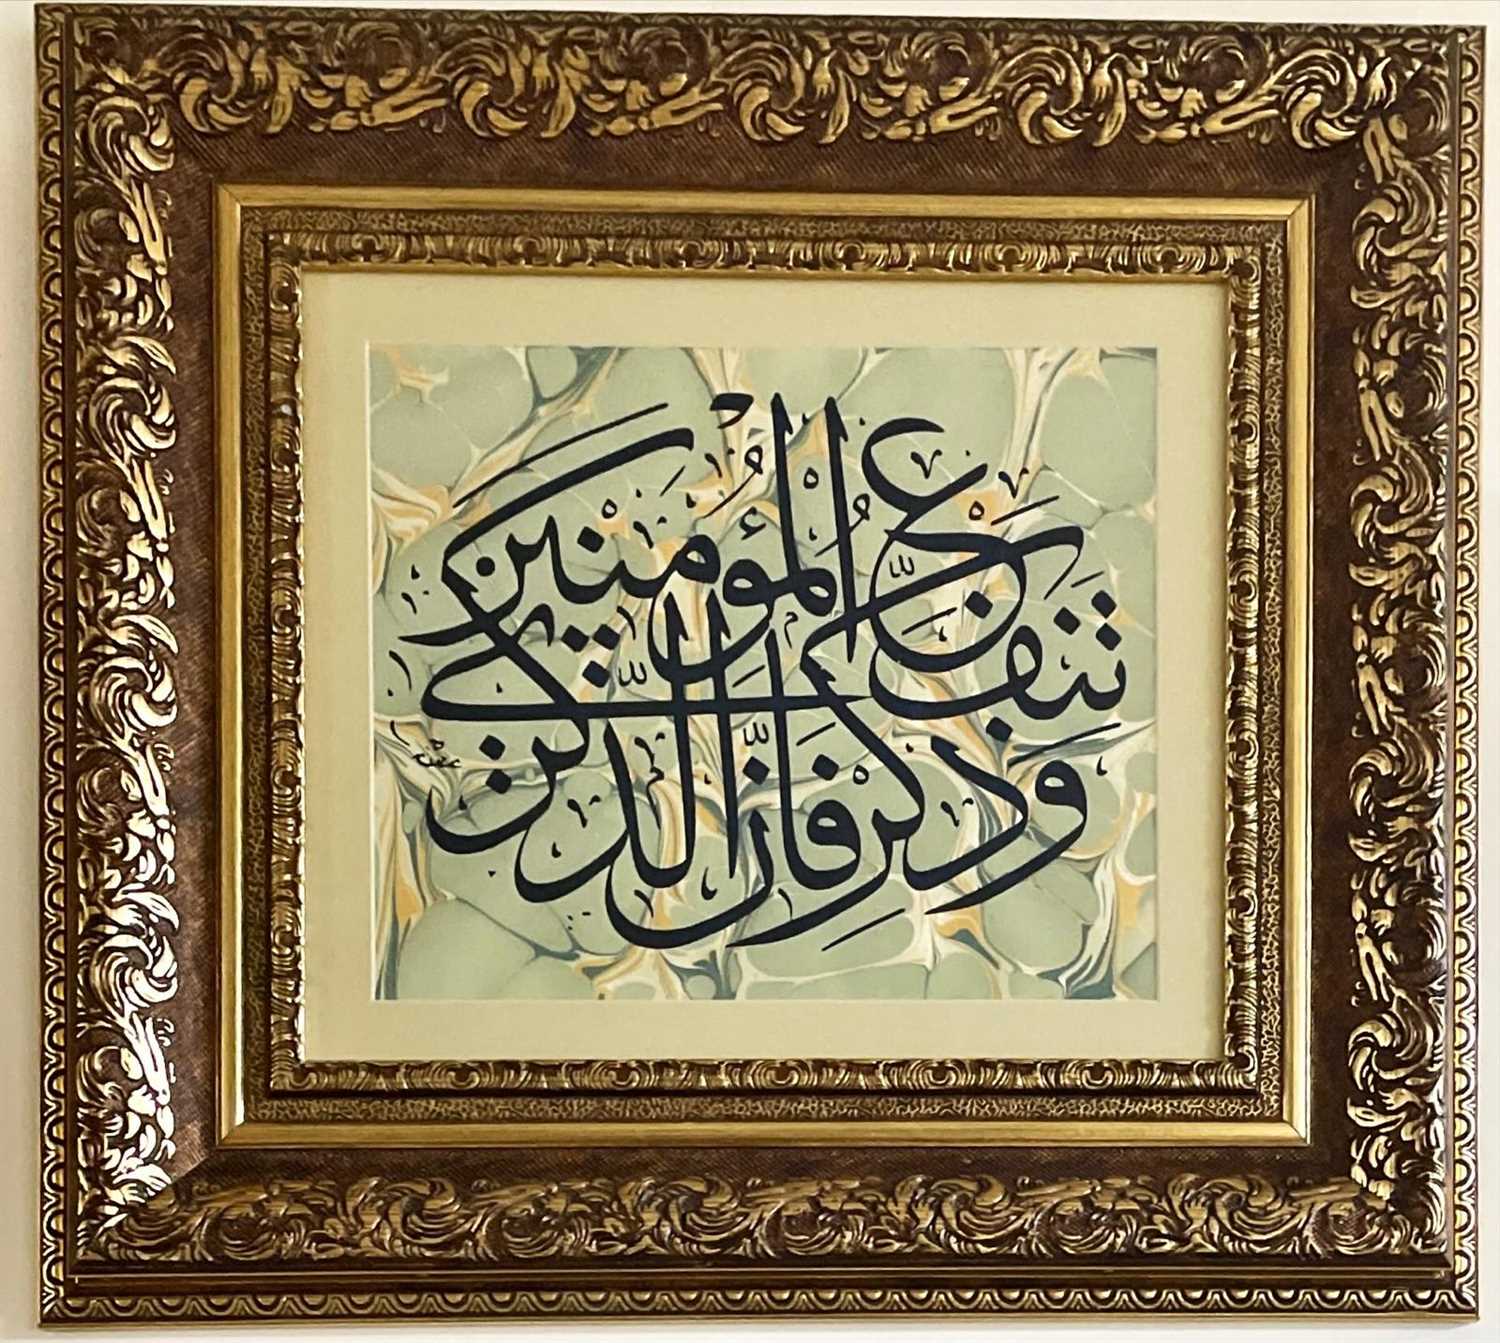 وَذَكِّرْ فَإِنَّ الذِّكْرَىٰ
تَنفَعُ الْمُؤْمِنِينَ